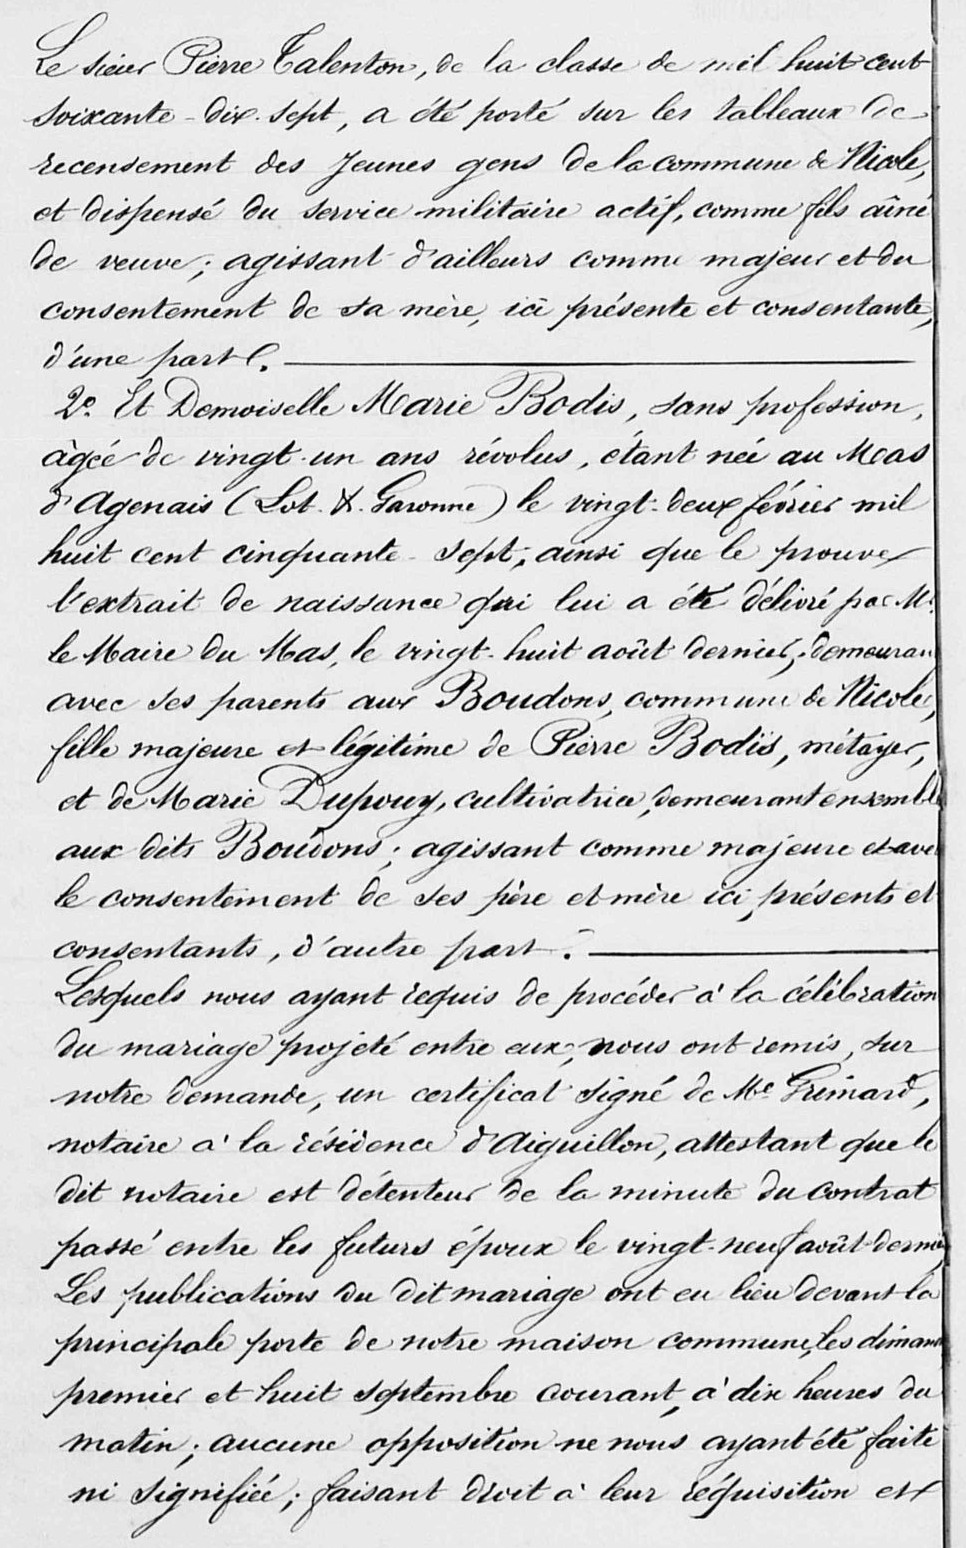 Le sieur Pierre Talenton, de la classe de mil huit cent
soixante-dix-sept, a été porté sur les tableaux de
recensement des jeunes gens de la commune de Nicole,
et dispensé du service militaire actif, comme fils aîné
de veuve; agissant d'ailleurs comme majeur et du
consentement de sa mère, ici présente et consentante,
d'une part.
2º. Et Demoiselle Marie Bodis, sans profession,
âgée de vingt-un ans révolus, étant née au Mas
d'Agenais (Lot-&-Garonne) le vingt-deux février mil
huit cent cinquante-sept, ainsi que le prouve
l'extrait de naissance qui lui a été délivré par Mr.
le Maire du Mas, le vingt-huit août dernier; demeuran
avec ses parents aux Boudons, commune de Nicole,
fille majeure et légitime de Pierre Bodis, métayer,
et de Marie Dupouy, cultivatrice, demeurant ensemble
aux dits Boudons; agissant comme majeure et avec
le consentement de ses père et mère ici présents et
consentants, d'autre part.
Lesquels nous ayant requis de procéder à la célébration
du mariage projeté entre eux, nous ont remis, sur
notre demande, un certificat signé de Me Grimard,
notaire à la résidence d'Aiguillon, attestant que le
dit notaire est détenteur de la minute du contrat
passé entre les futurs époux le vingt-neuf août dernier,
Les publications du dit mariage ont eu lieu devant la
principale porte de notre maison commune, les diman
premier et huit septembre courant, à dix heures du
matin; aucune opposition ne nous ayant été faite
ni signifiée; faisant droit à leur réquisition et